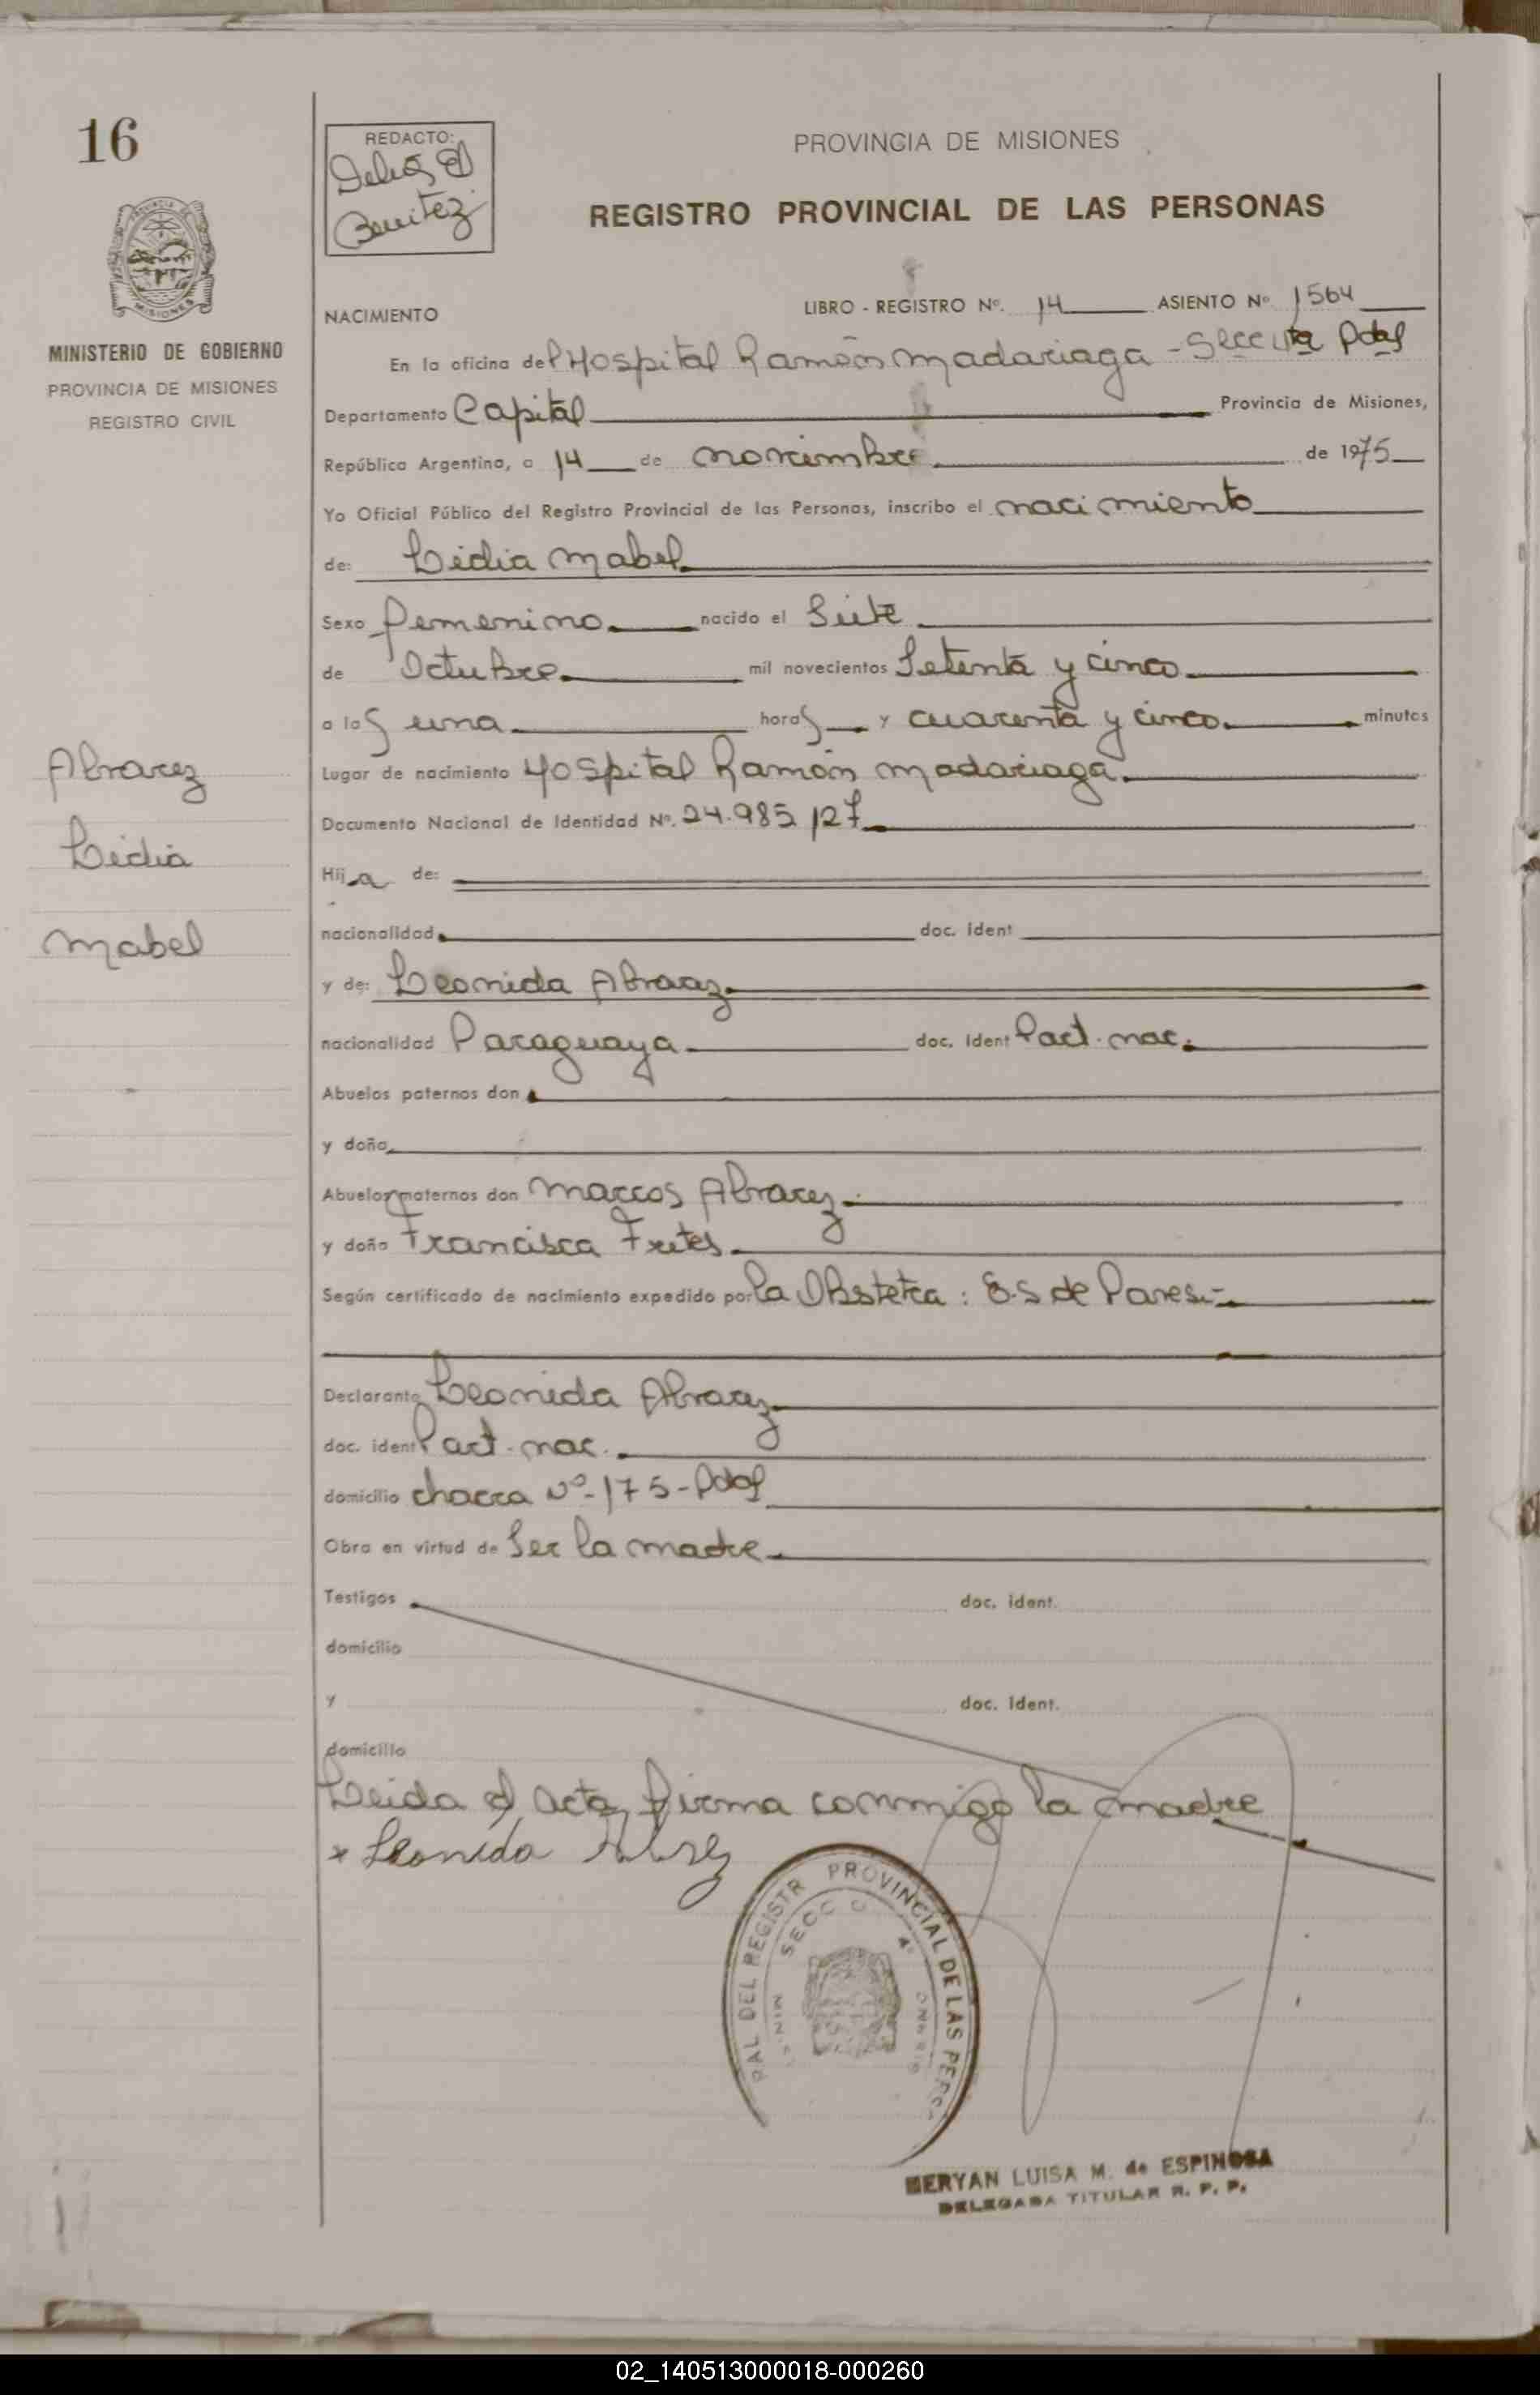 16
MINISTERIO DE GOBIERNO
PROVINCIA DE MISIONES
REGISTRO CIVIL
Alvarez
Lidia
Mabel
REDACTO:
Benitez
PROVINCIA DE MISIONES
REGISTRO PROVINCIAL DE LAS PERSONAS
NACIMIENTO LIBRO - REGISTRO Nº. 14 ASIENTO Nº 1564
En la oficina del Hospital Ramón Madariaga - Secc 4ta Pdas
Departamento Capital Provincia de Misiones,
República Argentina, a 14 de noviembre de 1975
Yo Oficial Público del Registro Provincial de las Personas, inscribo el nacimiento
de: Lidia Mabel
Sexo femenino nacido el Siete
de Octubre mil novecientos Setenta y cinco
a las una horas y cuarenta y cinco minutos
Lugar de nacimiento Hospital Ramón Madariaga
Documento Nacional de Identidad Nº. 24.985.127
Hija de:
nacionalidad doc. ident
y de: Leonida Alvarez
nacionalidad Paraguaya doc. ident Part. nac.
Abuelos paternos don
y doña
Abuelos maternos don Marcos Alvarez
y doña Francisca Fretes
Según certificado de nacimiento expedido por la Obstetra: E.S de Paresi
Declarante Leonida Alvarez
doc. ident Part. nac.
domicilio chacra Nº 175 - Pdas
Obra en virtud de Ser la madre
Testigos doc. ident.
domicilio
y doc. ident.
domicilio
Leida el acta, firma conmigo la madre
x Leonida Alvarez
RAL DEL REGISTR PROVINCIAL DE LAS PERSO
SECC 4ª
MERYAN LUISA M. de ESPINOSA
DELEGADA TITULAR R. P. P.
02_140513000018-000260